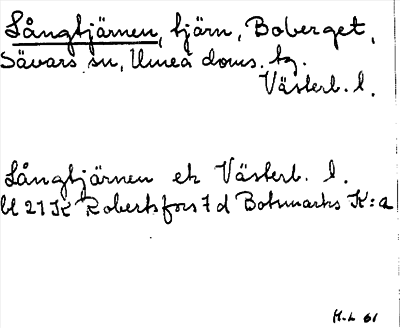 Långtjärnen, tjärn, Boberget,
Sävars sn, Umeå doms. tg.
Västerb. l.
Långtjärnen ek Västerb. l.
bl 21K Robertsfors 7d Botsmarks K:a
H.L 61